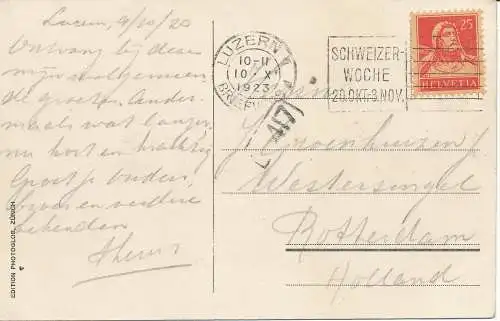 Luzern, 9/10/23
Ontvang bij deze
mijn algemeen
de groeten. Ander-
maals wat langer
nu kort en krachtig
Groet je ouders,
broer en verdere
bekenden
LUZERN 1
10-11
10 X
1923
BRIEF
417
SCHWEIZER-
WOCHE
20.OKT-3.NOV.
25
HELVETIA
Westersingel
Rotterdam
Holland
EDITION PHOTOGLOB, ZÜRICH